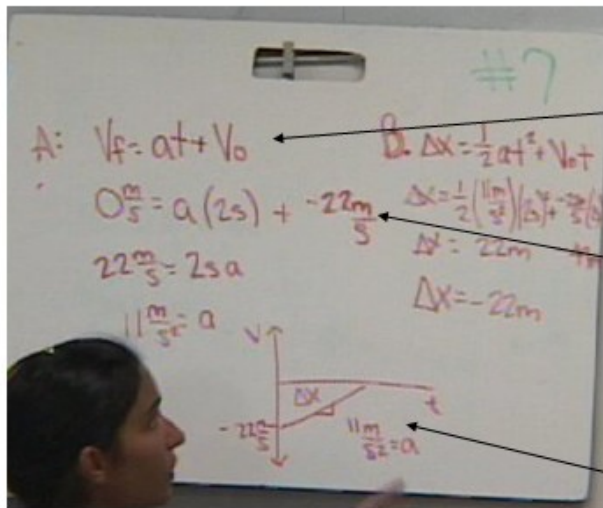 #7
A: Vf = at + V₀
0 m/s = a (2s) + -22 m/s
22 m/s = 2s a
11 m/s² = a
B. ΔX = 1/2 at² + V₀t
ΔX = 1/2 (11m/s²)(2s)² + -22m/s
ΔX = 22m
ΔX = -22m
V
ΔX
t
-22 m/s
11 m/s² = a